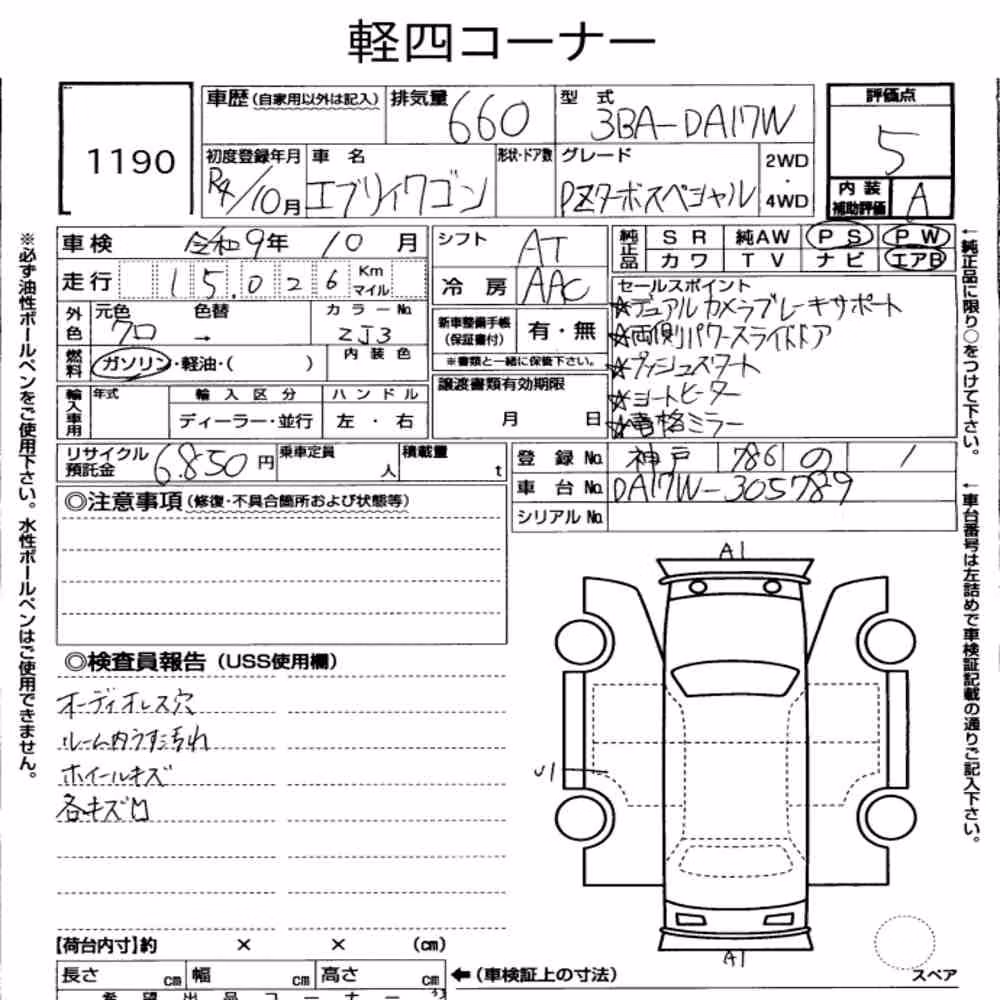 軽四コーナー
1190
車歴(自家用以外は記入) 排気量 660 型式 3BA-DA17W
評価点 5
初度登録年月 R4/10月 車名 エブリィワゴン 形状・ドア数 グレード PZターボスペシャル 2WD・4WD
内装補助評価 A
車検 令和9年 10月 シフト AT
純正品 SR 純AW PS PW
カワ TV ナビ エアB
走行 15.026 Km マイル 冷房 AAC
セールスポイント
☆デュアルカメラブレーキサポート
☆両側パワースライドドア
☆プッシュスタート
☆シートヒーター
☆電格ミラー
外色 元色 クロ → 色替 カラーNo. ZJ3
新車整備手帳(保証書付) 有・無
※書類と一緒に保管下さい。
燃料 ガソリン・軽油・( ) 内装色
譲渡書類有効期限
月 日
輸入車用 年式 輸入区分 ハンドル
ディーラー・並行 左・右
リサイクル預託金 6.850円 乗車定員 人 積載量 t
登録No. 神戸 786 の 1
車台No. DA17W-305789
シリアルNo.
◎注意事項(修復・不具合箇所および状態等)
◎検査員報告(USS使用欄)
オーディオレス穴
ルーム内うす汚れ
ホイールキズ
各キズ凹
A1
U1
A1
スペア
【荷台内寸】約 × × (cm)
長さ cm 幅 cm 高さ cm
←(車検証上の寸法)
希望出品コーナー
※必ず油性ボールペンをご使用下さい。水性ボールペンはご使用できません。
←純正品に限り○をつけて下さい。
←車台番号は左詰めで車検証記載の通りご記入下さい。